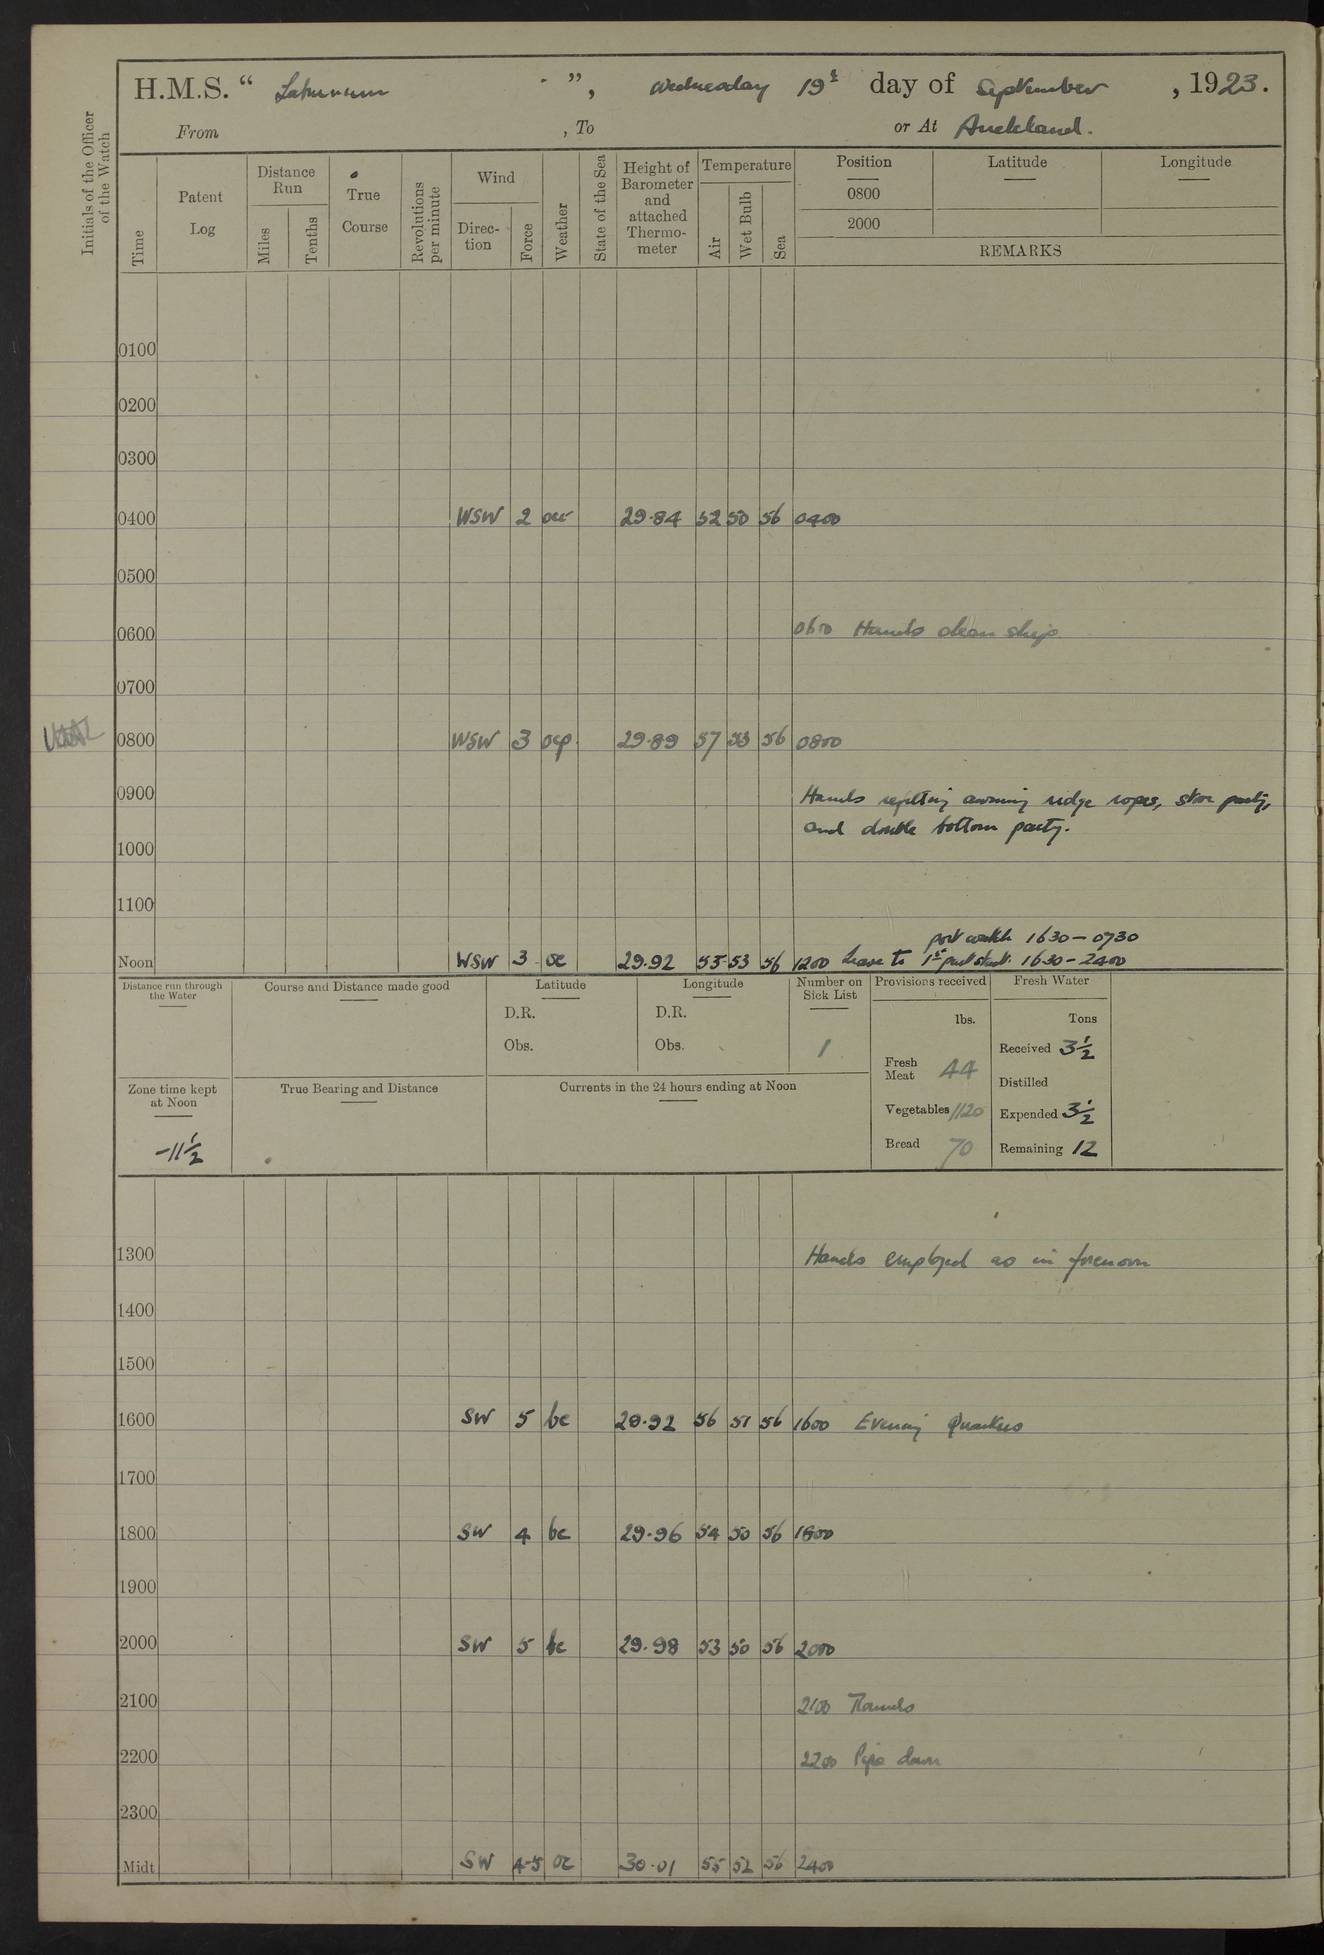 H.M.S. " Laburnum ", Wednesday 19th day of September, 1923.
From , To or At Auckland.
Initials of the Officer of the Watch
Time
Patent Log
Distance Run
Miles
Tenths
True Course
Revolutions per minute
Wind
Direction
Force
Weather
State of the Sea
Height of Barometer and attached Thermometer
Temperature
Air
Wet Bulb
Sea
Position Latitude Longitude
0800
2000
REMARKS
0100
0200
0300
0400 WSW 2 29.84 52 50 56 0400
0500
0600 0600 Hands clean ship
0700
0800 WSW 3 ocp 29.89 57 53 56 0800
0900 Hands refitting awning ridge ropes, store party,
and double bottom party.
1000
1100
port watch 1630 - 0730
Noon WSW 3 oc 29.92 55 53 56 1200 Leave to 1st part 1630 - 2400
Distance run through the Water
Course and Distance made good
Latitude
D.R.
Obs.
Longitude
D.R.
Obs.
Number on Sick List
1
Provisions received
lbs.
Fresh Meat 44
Vegetables 1120
Bread 70
Fresh Water
Tons
Received 3 1/2
Distilled
Expended 3 1/2
Remaining 12
Zone time kept at Noon
-11 1/2
True Bearing and Distance
Currents in the 24 hours ending at Noon
1300 Hands employed as in forenoon
1400
1500
1600 SW 5 bc 29.92 56 51 56 1600 Evening Quarters
1700
1800 SW 4 bc 29.96 54 50 56 1800
1900
2000 SW 5 bc 29.98 53 50 56 2000
2100 2100 Rounds
2200 2200 Pipe down
2300
Midt SW 4-5 oc 30.01 55 52 56 2400